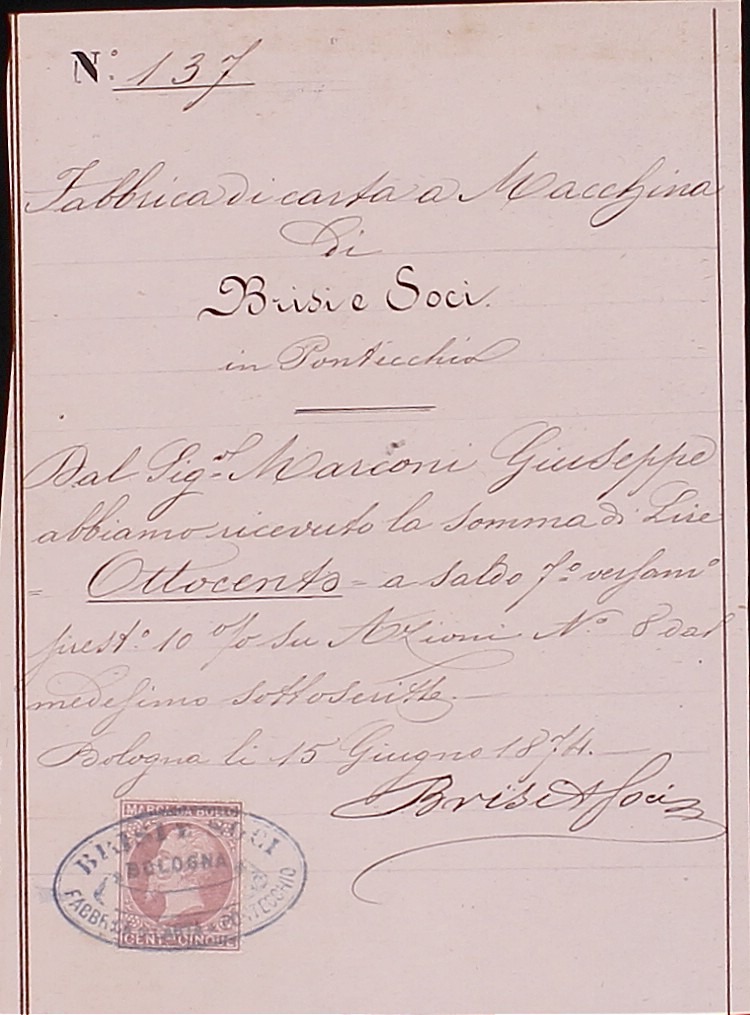 N.º 137
Fabbrica di carta a Macchina
di
Brisi e Soci.
in Pontecchio
Dal Sig.or Marconi Giuseppe
abbiamo ricevuto la somma di Lire
= Ottocento = a saldo 7.º versam.º
prest.º 10 % su Azioni Nº 8 dal
medesimo sottoscritte.
Bologna li 15 Giugno 1874.
Brisi & Soci
MARCA DA BOLLO
BRISI E SOCI
BOLOGNA
FABBRICA CARTA PONTECCHIO
CENT. CINQUE